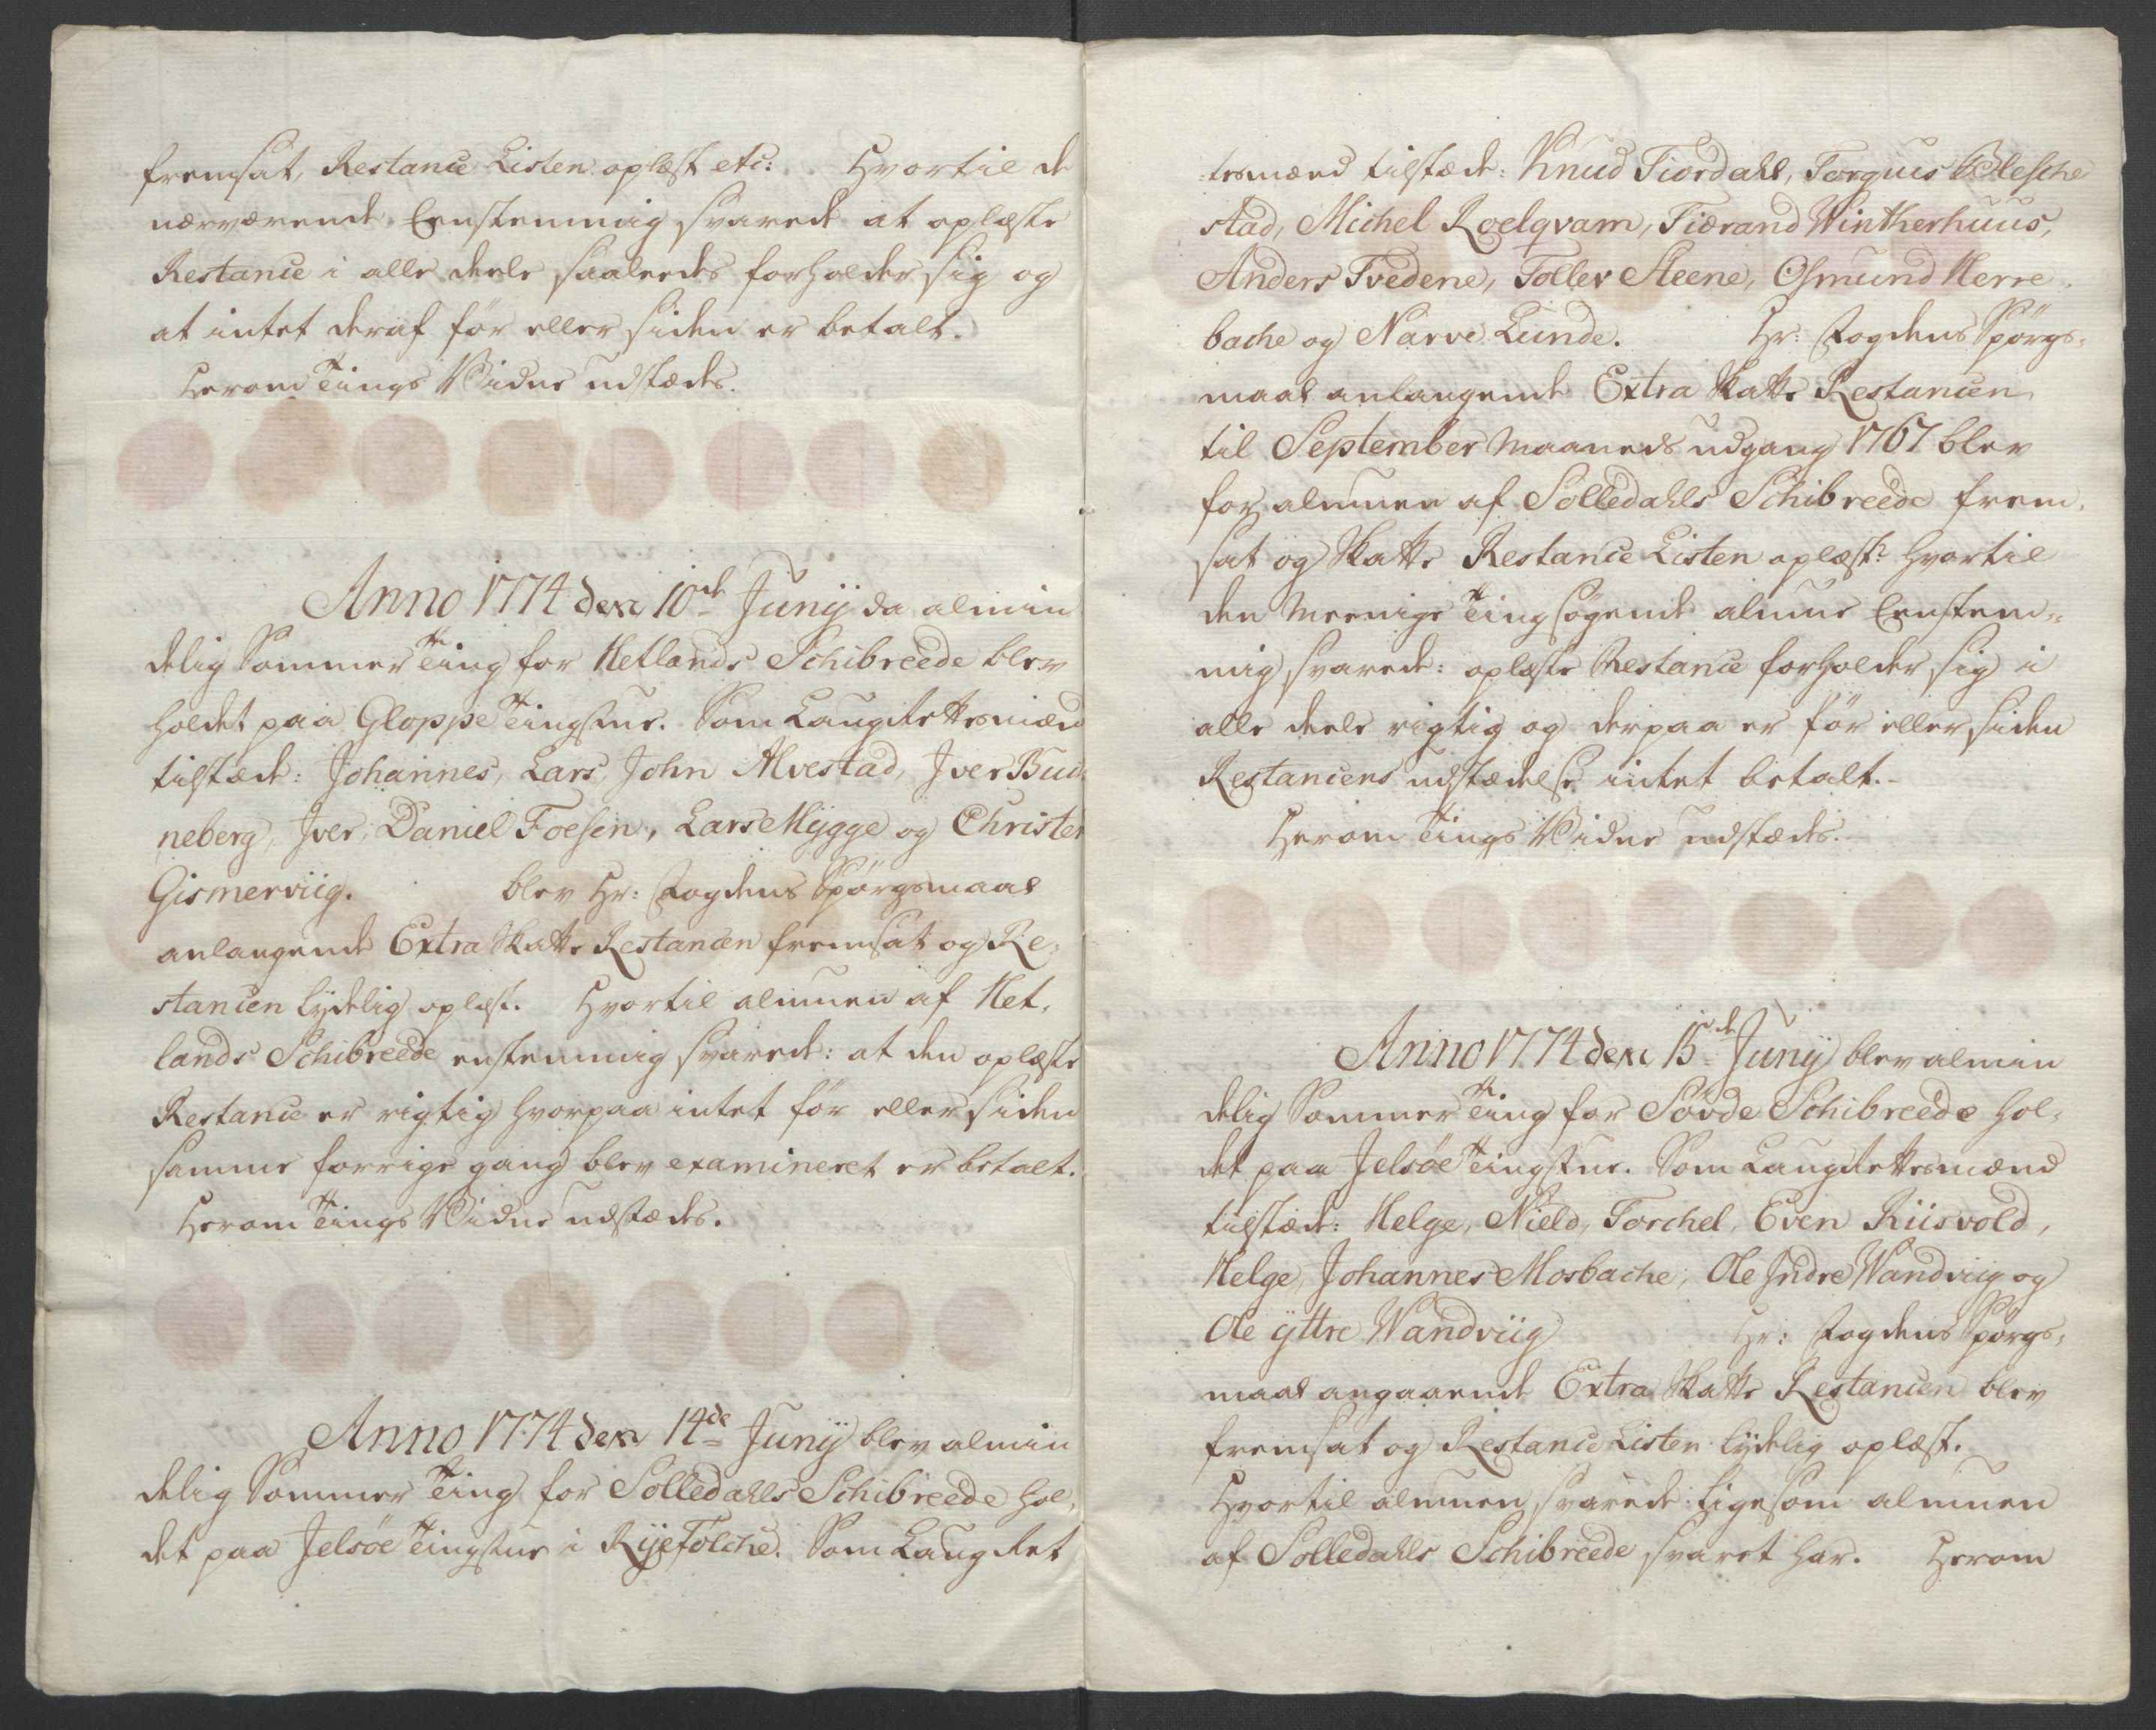 fremsat, Restance Listen oplæst etc: Hvortil de
nærværende Eenstemmig svarede at oplæste
Restance i alle deele saaleedes forholder sig og
at intet deraf før eller siden er betalt.
Herom Tings Vidne udstædes.
Anno 1774 den 10de Junij da almin
delig Sommer Ting for Hetlands Schibreede blev
holdet paa Gloppe Tingstue. Som Laugrettesmænd
tilstæde: Johannes, Lars, John Alvestad, Jver Bud,
neberg, Jver, Daniel Foesen, Lars Mygge og Christen
Gismerviig. blev Hr: Fogdens Spørgsmaal
anlangende Extra Skatte Restancen fremsat og Re,
stancen lydelig oplæst. Hvortil almuen af Het,
lands Schibreede enstemmig svarede: at den oplæste
Restance er rigtig hvorpaa intet før eller siden
samme forrige gang blev examineret er betalt.
Herom Tings Vidne udstædes.
Anno 1774 den 14de Junij blev almin
delig Sommer Ting for Solledahls Schibreede hol,
det paa Jelsøe Tingstue i Ryefølche. Som Laugret
tesmænd tilstæde: Knud Fiordahl, Torgius Blesche
stad, Michel Roelqvam, Tiærand Wintherhuus,
Anders Tvedene, Tollev Steene, Osmund Herre,
bache og Narve Lunde. Hr: Fogdens Spørgs,
maal anlangende Extra Skatte Restancen
til September Maaneds udgang 1767 blev
for almuen af Solledahls Schibreede frem,
sat og Skatte Restance Listen oplæst: hvortil
den meenige Tingsøgende almue Eenstem,,
mig svarede: oplæste Restance forholder sig i
alle deele rigtig og derpaa er før eller siden
Restancens udstædelse intet betalt.
Herom Tings Vidne udstædes.
Anno 1774 den 15de Junij blev almin
delig Sommer Ting for Søvde Schibreede hol,
det paa Jelsøe Tingstue. Som Laugrettesmænd
tilstæde: Helge, Nield, Torchel, Even Riisvold,
Helge, Johannes Mosbache, Ole Indre Wandviig og
Ole yttre Wandviig Hr: Fogdens Spørgs,
maal angaaende Extra Skatte Restancen blev
fremsat og Restance Listen lydelig oplæst.
Hvortil almuen svarede ligesom almuen
af Solledahls Schibreede svaret har. Herom